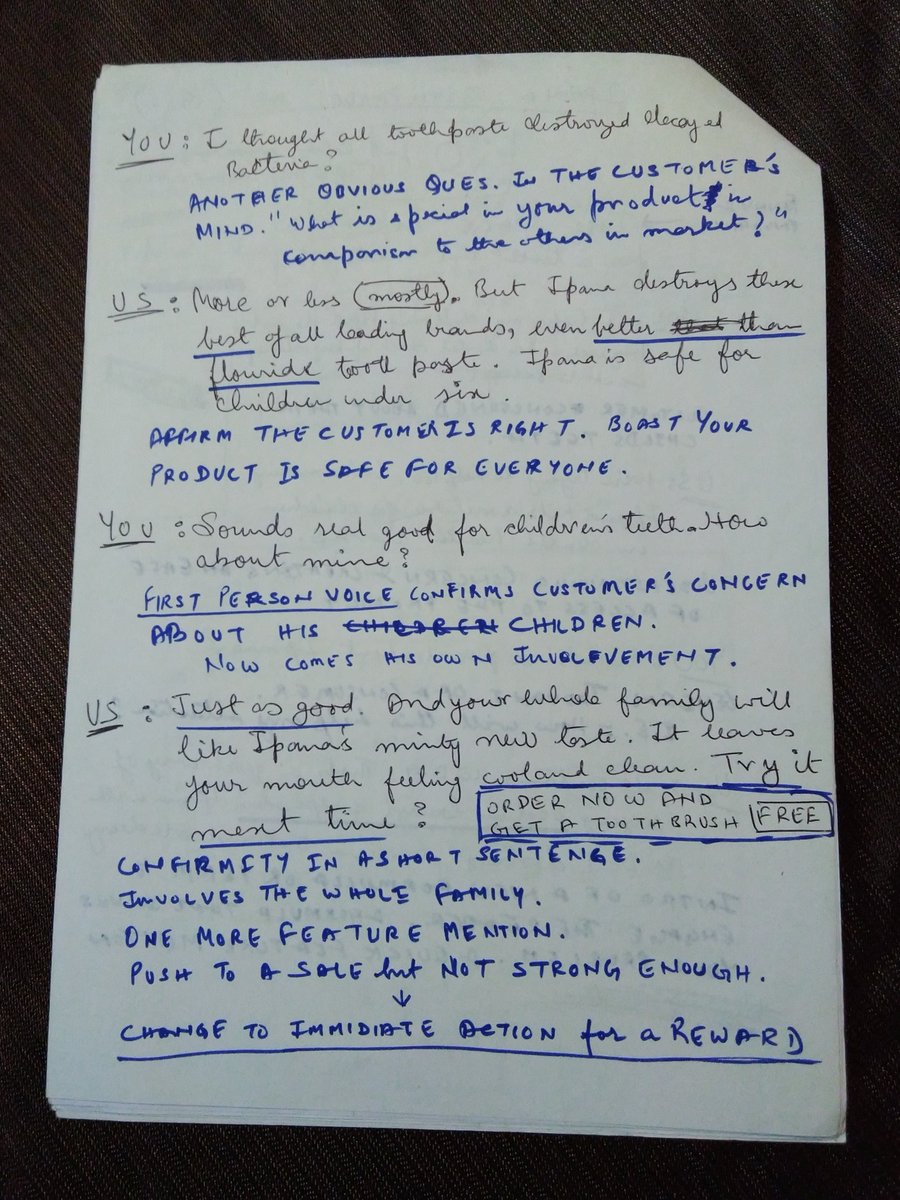 YOU: I thought all toothpaste destroyed decayed
Bacteria?
ANOTHER OBVIOUS QUES. IN THE CUSTOMER'S
MIND. "What is special in your product in
comparison to the others in market?"
US: More or less (mostly). But Ipana destroys these
best of all leading brands, even better than
flouride tooth paste. Ipana is safe for
children under six.
AFFIRM THE CUSTOMER IS RIGHT. BOAST YOUR
PRODUCT IS SAFE FOR EVERYONE.
YOU: Sounds real good for children's teeth. How
about mine?
FIRST PERSON VOICE CONFIRMS CUSTOMER'S CONCERN
ABOUT HIS CHILDREN CHILDREN.
NOW COMES HIS OWN INVOLEVEMENT.
US: Just as good. And your whole family will
like Ipana's minty new taste. It leaves
your mouth feeling cool and clean. Try it
next time?
ORDER NOW AND
GET A TOOTHBRUSH FREE
CONFIRMITY IN A SHORT SENTENGE.
INVOLVES THE WHOLE FAMILY.
ONE MORE FEATURE MENTION.
PUSH TO A SALE but NOT STRONG ENOUGH.
↓
CHANGE TO IMMIDIATE ACTION for a REWARD